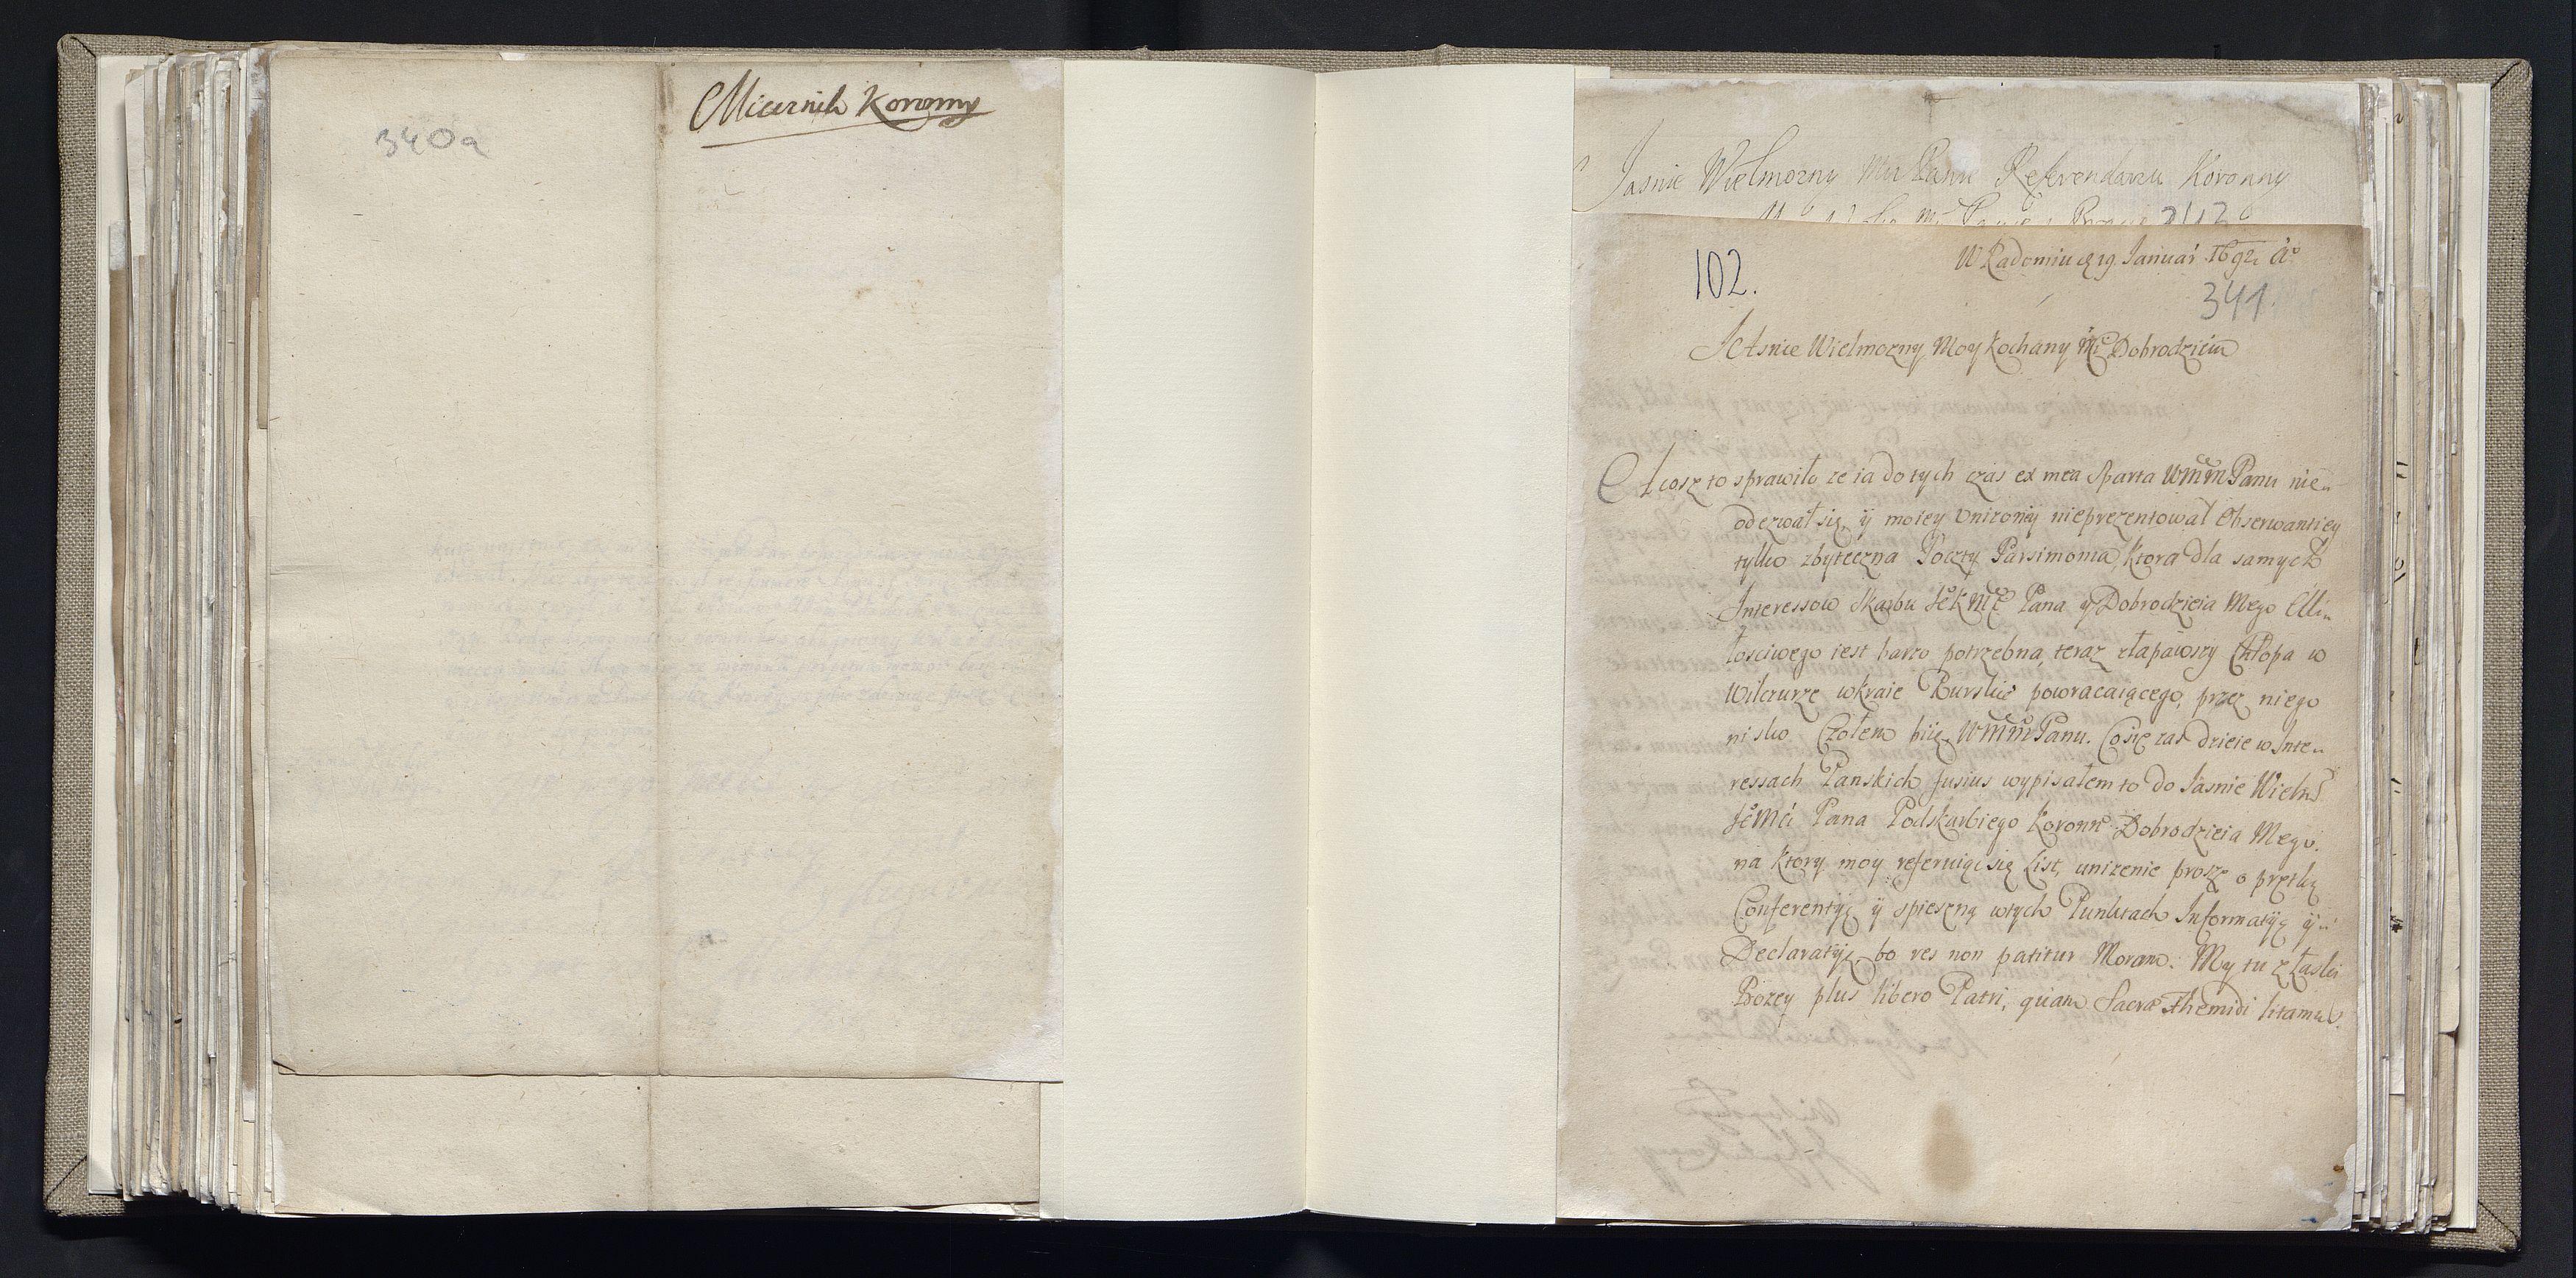 340a
Miecznik Koronny
Jasnie Wielmozny Mci Panie Referendarzu Koronny
342
102.
W Radomiu d 19. Januar 1692. Ao
341.
JAsnie Wielmozny Moy Kochany Mci Dobrodzieiu
A cosz to sprawiło ze ia do tych czas ex mea Sparta WMM Panu nie-
odezwał się, ÿ moiey Unizoney nieprezentował Obserwantiey
tylko zbyteczna Poczty Parsimonia, ktora dla samych
Interessow Skarbu JeK Mci Pana ÿ Dobrodzieia Mego Mi-
łosciwego iest barzo potrzebna, teraz złapawszy Chłopa w
Wilczurze w kraie Ruskie powracaiącego, przez niego
nisko Czołem biię WMM Panu. Co się zas dzieie w Inte-
ressach Panskich fusius wypisałem to do Jasnie Wielm
JeMci Pana Podskarbiego Koronn Dobrodzieia Mego.
na ktory moy referuiąc się List, unizenie proszę o prętką
Conferentyę ÿ spieszną w tych Punktach Informatyę ÿ
Declaratyę, bo res non patitur Moram. My tu z Łaski
Bozey plus libero Patri, quam Sacræ Themidi litamus.